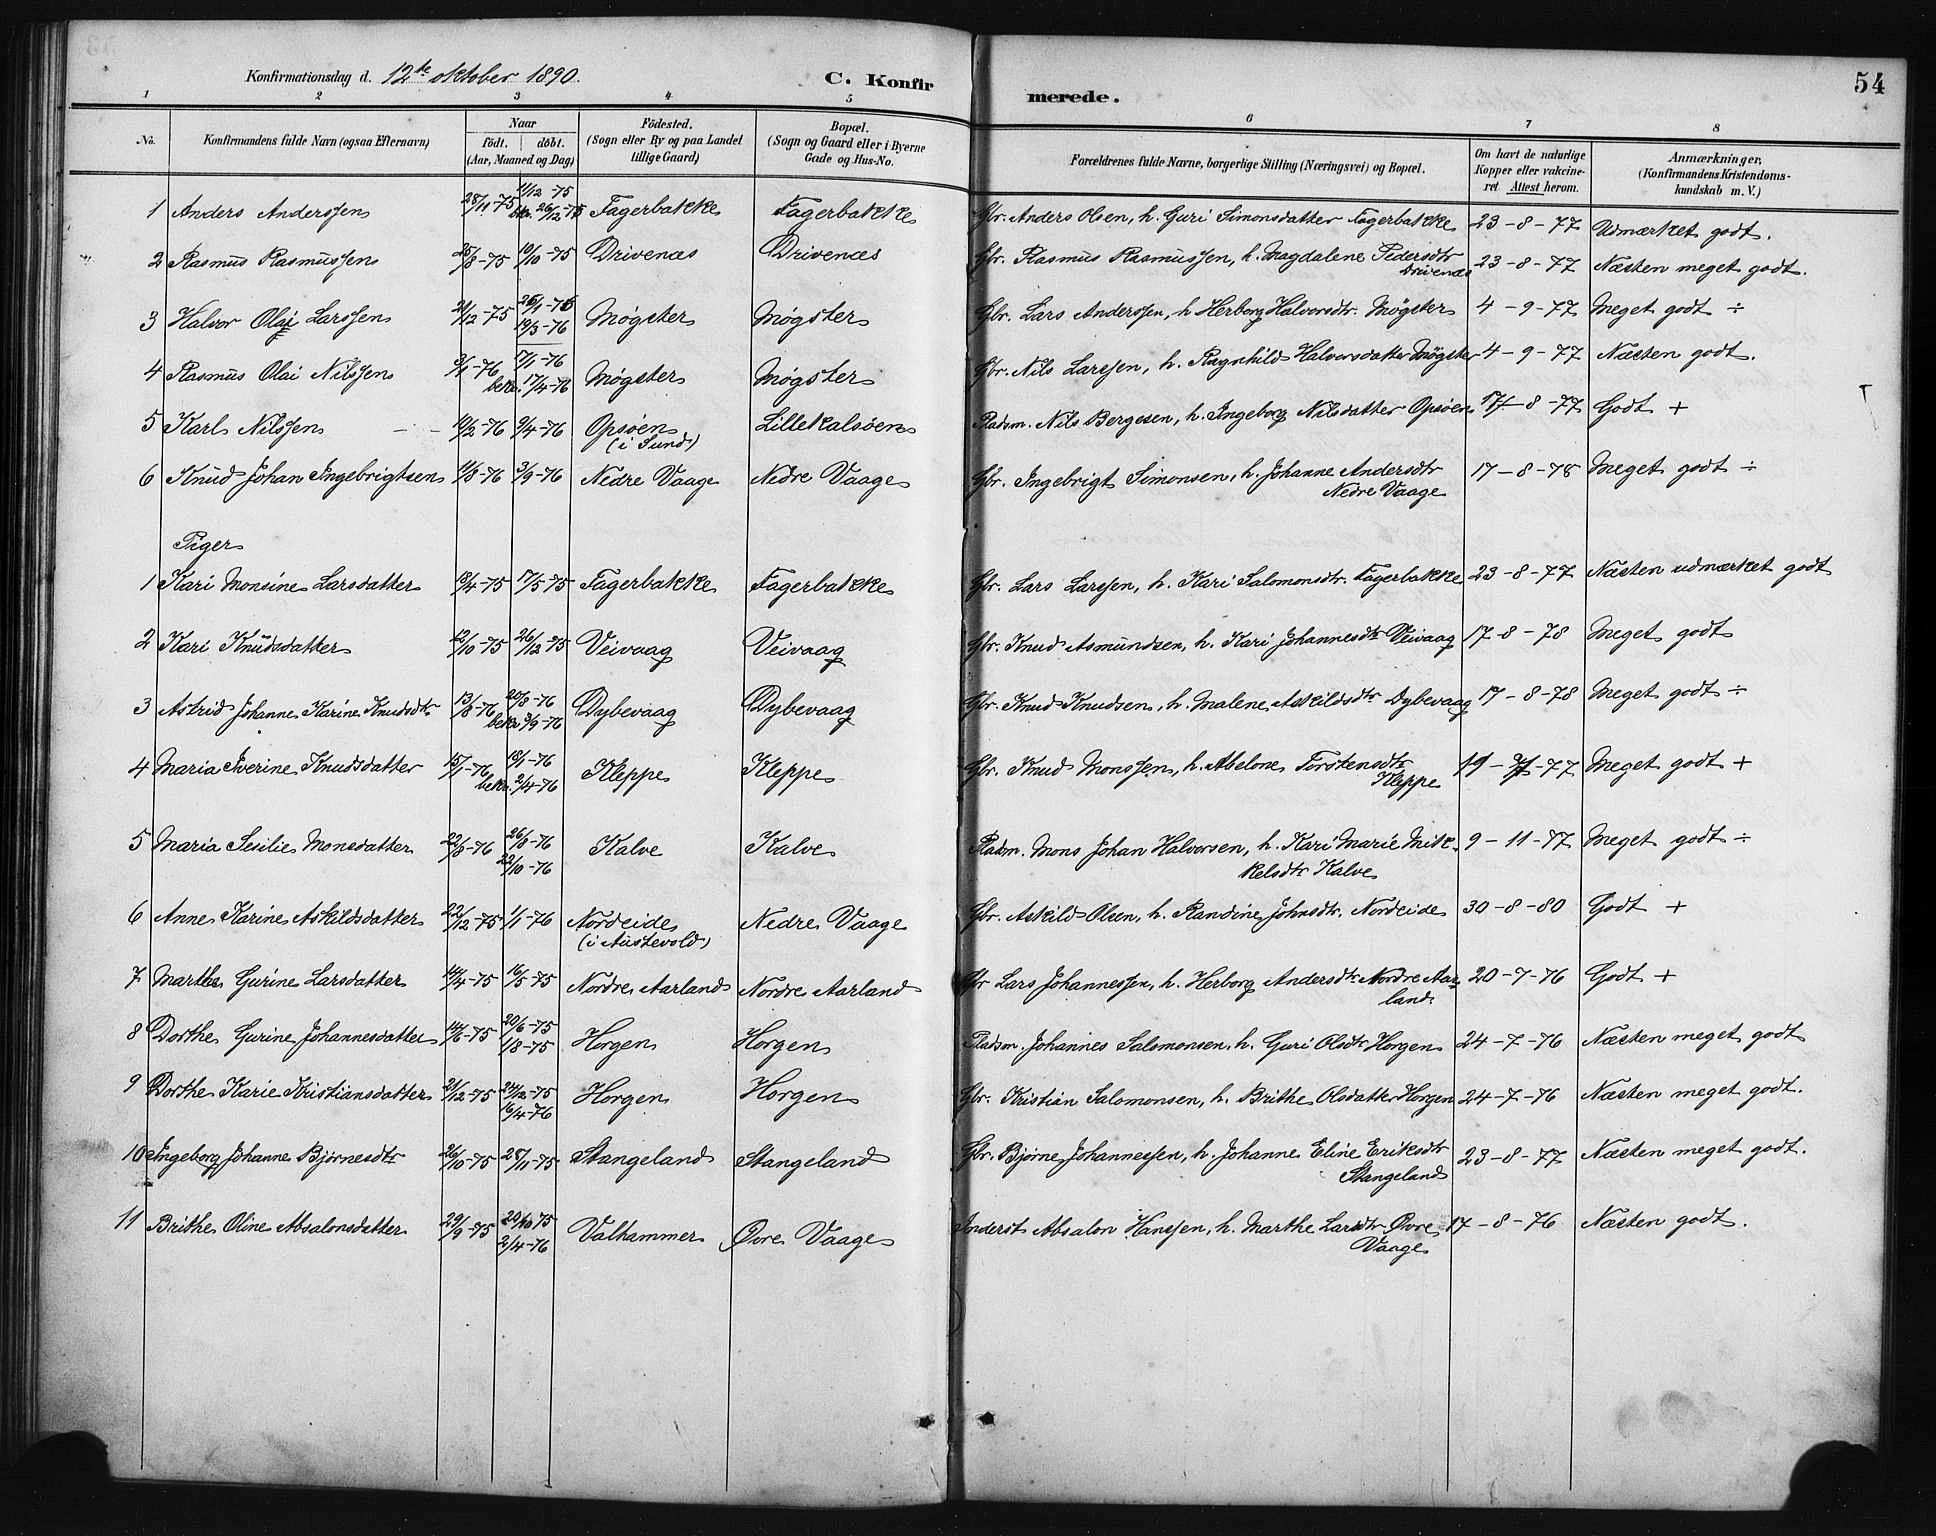 54
Konfirmationsdag d. 12te oktober 1890. C. Konfirmerede.
1 2 3 4 5 6 7 8
No. Konfirmandens fulde Navn (ogsaa Efternavn) Naar födt. döbt. (Aar, Maaned og Dag) Födested. (Sogn eller By og paa Landet tillige Gaard) Bopæl. (Sogn og Gaard eller i Byerne Gade og Hus-No. Forældrenes fulde Navne, borgerlige Stilling (Næringsvei) og Bopæl. Om havt de naturlige Kopper eller vakcineret Attest herom. Anmærkninger, (Konfirmandens Kristendomskundskab m. V.)
1 Anders Anderssen 28/11-75 11/12-75 bekr. 26/12-75 Fagerbakke Fagerbakke Gbr. Anders Olsen, h. Guri Simonsdatter Fagerbakke 23-8-77 Udmærket godt.
2 Rasmus Rasmussen 25/8-75 10/10-75 Drivenæs Drivenæs Gbr. Rasmus Rasmussen, h. Magdalene Pedersdtr Drivenæs 23-8-77 Næsten meget godt.
3 Halvor Olai Larssen 21/12-75 19/3-76 Møgster Møgster Gbr. Lars Anderssen, h Herborg Halvorsdtr. Møgster 4-9-77 Meget godt ÷
4 Rasmus Olai Nilssen 3/1-76 17/1-76 bekr. 17/4-76 Møgster Møgster Gbr. Nils Larssen, h. Ragnhild Halvorsdatter Møgster 4-9-77 Næsten godt.
5 Karl Nilssen 10/2-76 9/4-76 Opsøen (i Sund) Lillekalsøen Pladsm. Nils Bergesen, h. Ingeborg Nilsdatter Opsøen 17-8-77 Godt +
6 Knud Johan Ingebrigtsen 11/8-76 3/9-76 Nedre Vaage Nedre Vaage Gbr. Ingebrigt Simonsen, h. Johanne Andersdtr Nedre Vaage 17-8-78 Meget godt ÷
Piger
1 Kari Monsine Larsdatter 18/4-75 17/5-75 Fagerbakke Fagerbakke Gbr. Lars Larssen, h. Kari Salomonsdtr. Fagerbakke 23-8-77 Næsten udmærket godt
2 Kari Knudsdatter 12/10-75 26/12-75 Veivaag Veivaag Gbr. Knud Asmundsen, h. Kari Johannesdtr Veivaag 17-8-78 Meget godt
3 Astrid Johanne Karine Knudsdtr 13/8-76 20/8-76 bekr. 3/9-76 Dybevaag Dybevaag Gbr. Knud Knudsen, h. Malene Askildsdtr Dybevaag 17-8-78 Meget godt ÷
4 Maria Iverine Knudsdatter 15/1-76 18/1-76 bekr. 2/4-76 Kleppe Kleppe Gbr. Knud Monssen, h. Abelone Torstensdtr Kleppe 77 Meget godt +
5 Maria Sesilie Monsdatter 22/8-76 26/8-76 22/10-76 Kalve Kalve Pladsm. Mons Johan Halvorsen, h. Kari Marie Mikkelsdtr Kalve 9-11-77 Meget godt ÷
6 Anne Karine Askildsdatter 22/12-75 1/1-76 Nordeide (i Austevold) Nedre Vaage Gbr. Askild Olsen, h. Randine Johnsdtr. Nordeide 30-8-80 Godt +
7 Marthe Gurine Larsdatter 14/4-75 16/5-75 Nordre Aarland Nordre Aarland Gbr Lars Johannessen, h. Herborg Andersdtr Nordre Aarland. 20-7-76 Godt +
8 Dorthe Gurine Johannesdatter 14/6-75 20/6-75 1/8-75 Horgen Horgen Pladsm. Johannes Salomonsen, h. Guri Olsdtr Horgen 24-7-76 Næsten meget godt
9 Dorthe Karie Kristiansdatter 21/12-75 24/12-75 16/4-76 Horgen Horgen Gbr. Kristian Salomonsen, h. Brithe Olsdatter Horgen 24-7-76 Næsten meget godt.
10 Ingeborg Johanne Bjørnesdtr 26/10-75 28/11-75 Stangeland Stangeland Gbr. Bjørne Johannessen, h. Johanne Eline Eriksdtr Stangeland 23-8-77 Næsten meget godt.
11 Brithe Oline Absalonsdatter 29/9-75 2/4-76 Valhammer Øvre Vaage Inderst Absalon Hanssen, h. Marthe Larsdtr Øvre Vaage 17-8-76 Næsten godt.